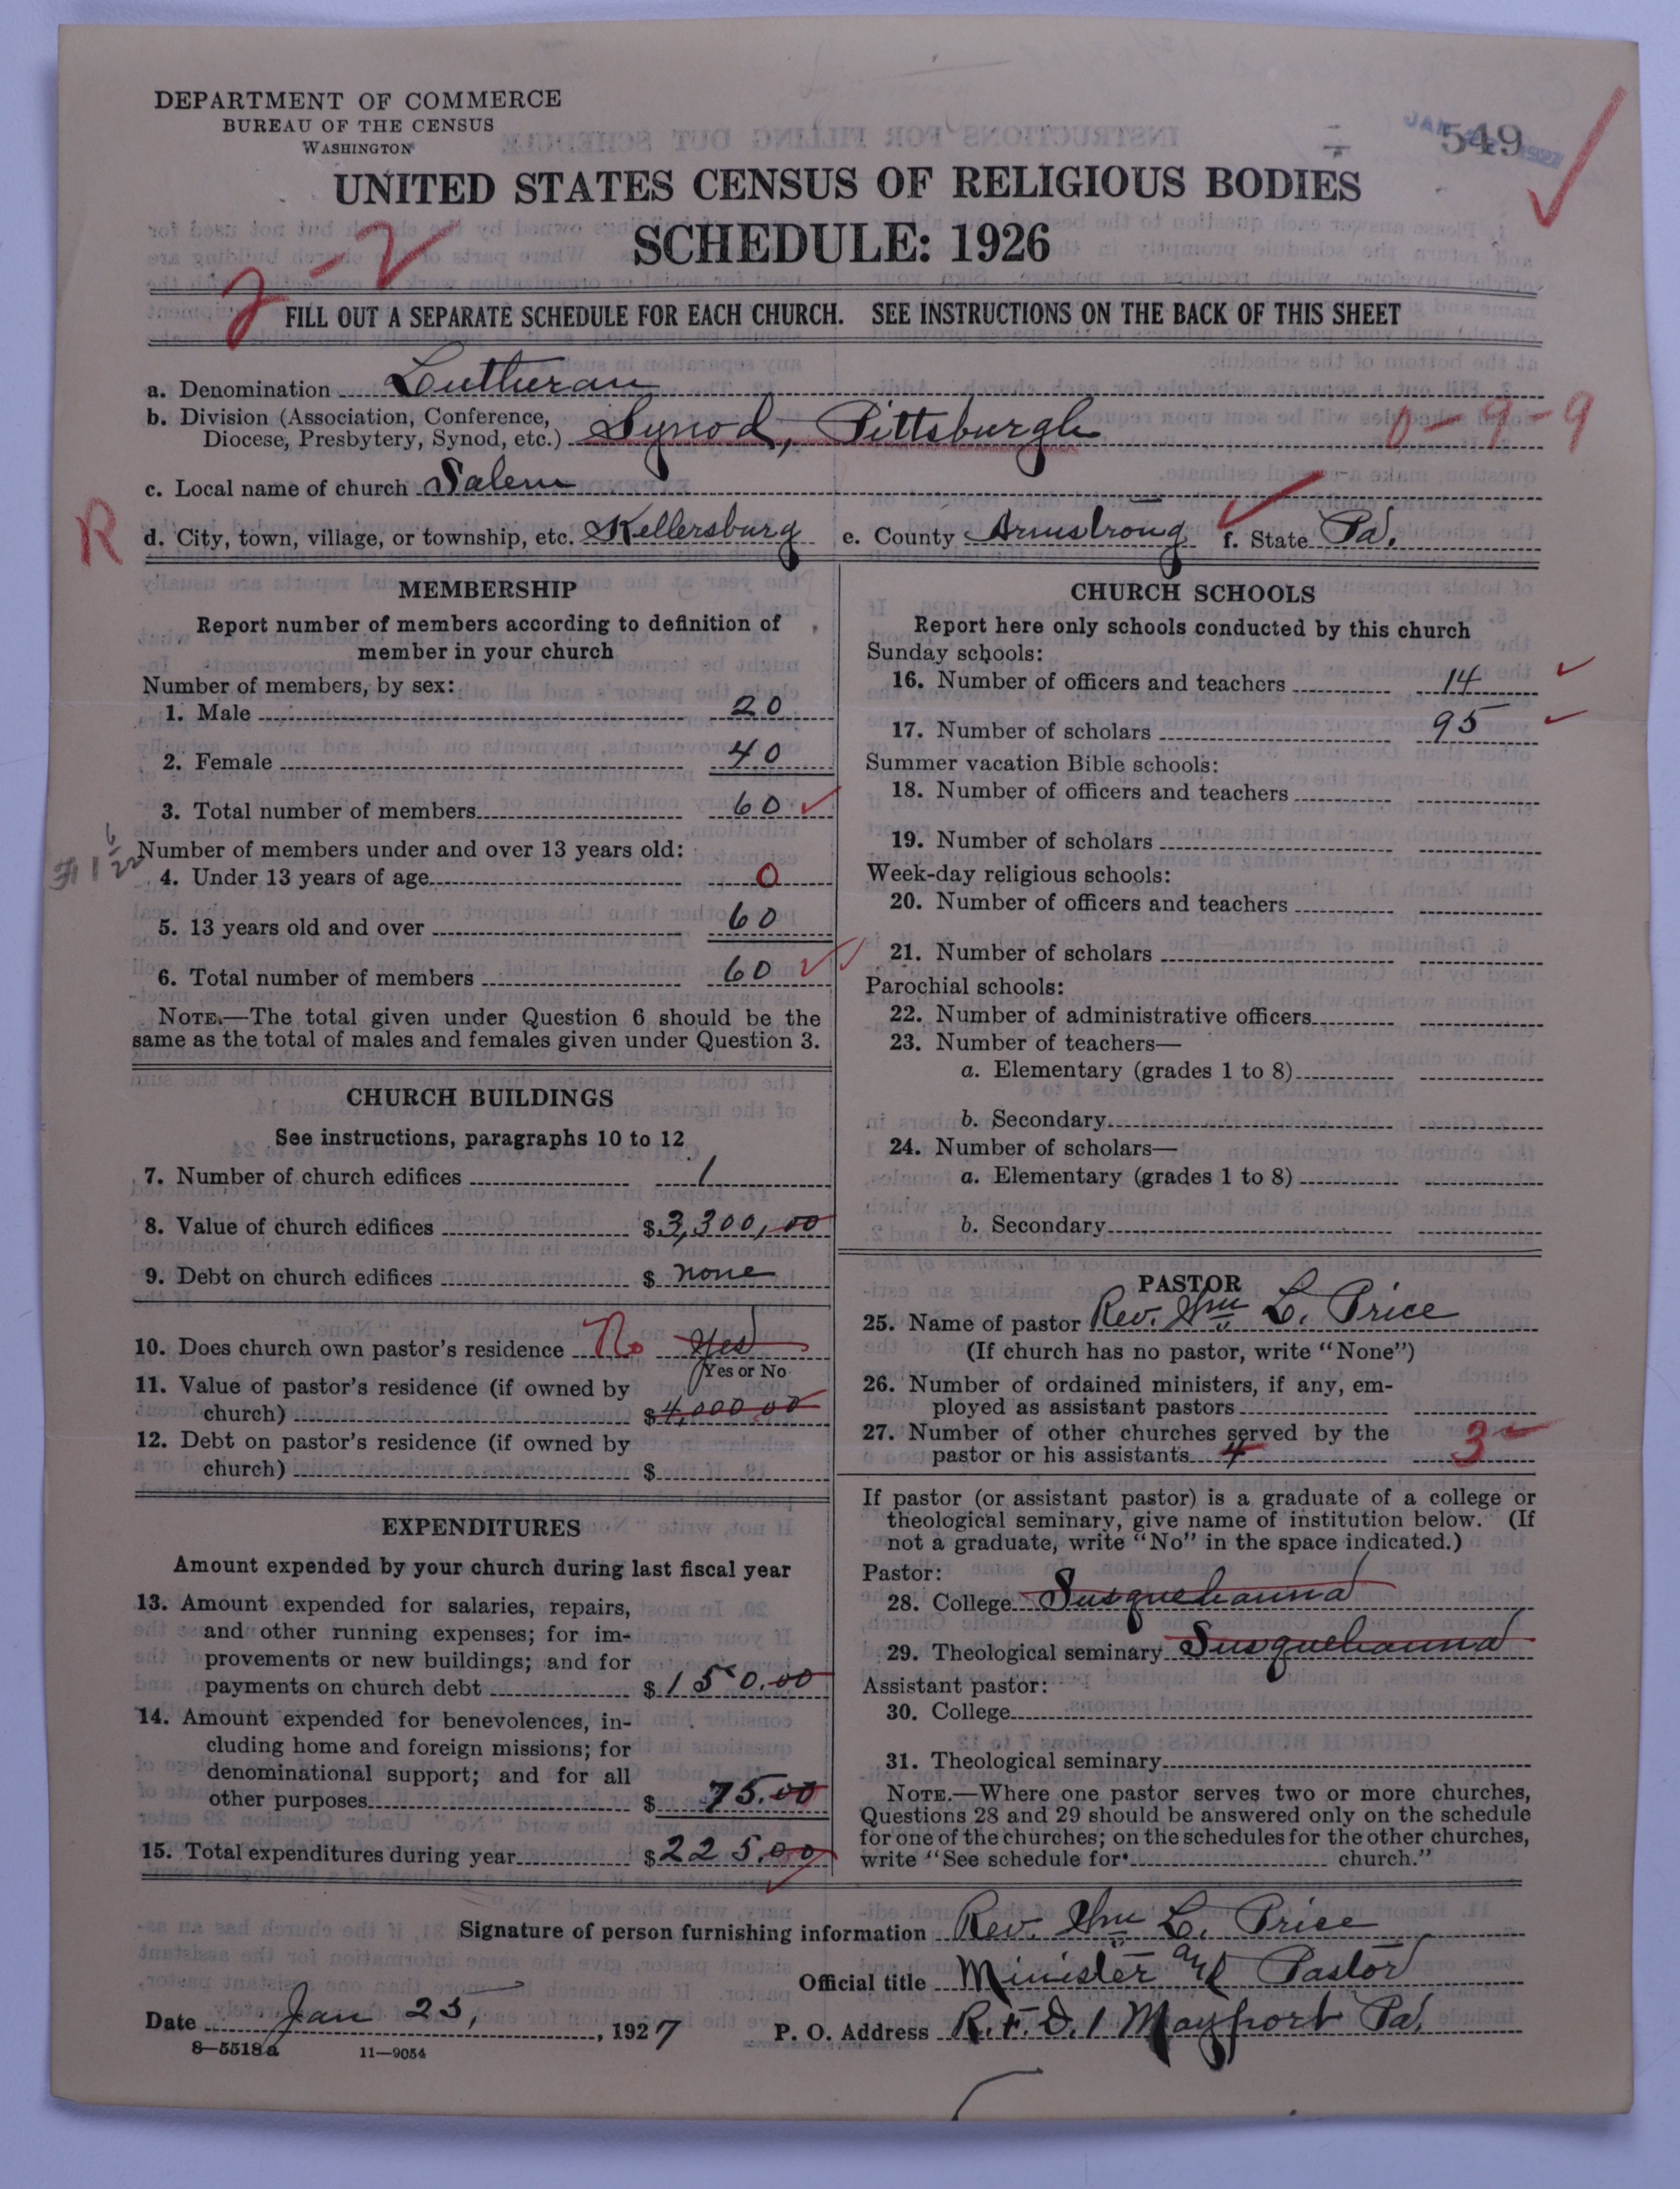 DEPARTMENT OF COMMERCE
BUREAU OF THE CENSUS
WASHINGTON
549
UNITED STATES CENSUS OF RELIGIOUS BODIES
SCHEDULE: 1926
2-2
FILL OUT A SEPARATE SCHEDULE FOR EACH CHURCH. SEE INSTRUCTIONS ON THE BACK OF THIS SHEET
a. Denomination Lutheran
b. Division (Association, Conference,
Diocese, Presbytery, Synod, etc.) Synod, Pittsburgh 0-9-9
c. Local name of church Salem
R
d. City, town, village, or township, etc. Kellersburg e. County Armstrong f. State Pa.
MEMBERSHIP
Report number of members according to definition of
member in your church
Number of members, by sex:
1. Male 20
2. Female 40
3. Total number of members 60
Number of members under and over 13 years old:
4. Under 13 years of age 0
5. 13 years old and over 60
6. Total number of members 60
NOTE.—The total given under Question 6 should be the
same as the total of males and females given under Question 3.
CHURCH BUILDINGS
See instructions, paragraphs 10 to 12
7. Number of church edifices 1
8. Value of church edifices $3,300,00
9. Debt on church edifices $ none
10. Does church own pastor's residence No Yes
Yes or No
11. Value of pastor's residence (if owned by
church) $4,000.00
12. Debt on pastor's residence (if owned by
church) $
EXPENDITURES
Amount expended by your church during last fiscal year
13. Amount expended for salaries, repairs,
and other running expenses; for im-
provements or new buildings; and for
payments on church debt $150.00
14. Amount expended for benevolences, in-
cluding home and foreign missions; for
denominational support; and for all
other purposes $ 75.00
15. Total expenditures during year $225.00
CHURCH SCHOOLS
Report here only schools conducted by this church
Sunday schools:
16. Number of officers and teachers 14
17. Number of scholars 95
Summer vacation Bible schools:
18. Number of officers and teachers
19. Number of scholars
Week-day religious schools:
20. Number of officers and teachers
21. Number of scholars
Parochial schools:
22. Number of administrative officers
23. Number of teachers—
a. Elementary (grades 1 to 8)
b. Secondary
24. Number of scholars—
a. Elementary (grades 1 to 8)
b. Secondary
PASTOR
25. Name of pastor Rev. Wm L. Price
(If church has no pastor, write "None")
26. Number of ordained ministers, if any, em-
ployed as assistant pastors
27. Number of other churches served by the
pastor or his assistants 4 3
If pastor (or assistant pastor) is a graduate of a college or
theological seminary, give name of institution below. (If
not a graduate, write "No" in the space indicated.)
Pastor:
28. College Susquehanna
29. Theological seminary Susquehanna
Assistant pastor:
30. College
31. Theological seminary
NOTE.—Where one pastor serves two or more churches,
Questions 28 and 29 should be answered only on the schedule
for one of the churches; on the schedules for the other churches,
write "See schedule for church."
Signature of person furnishing information Rev. Wm L. Price
Official title Minister and Pastor
Date Jan 25, 1927 P. O. Address R.F.D. 1 Mayport Pa.
8—5518a 11—9054